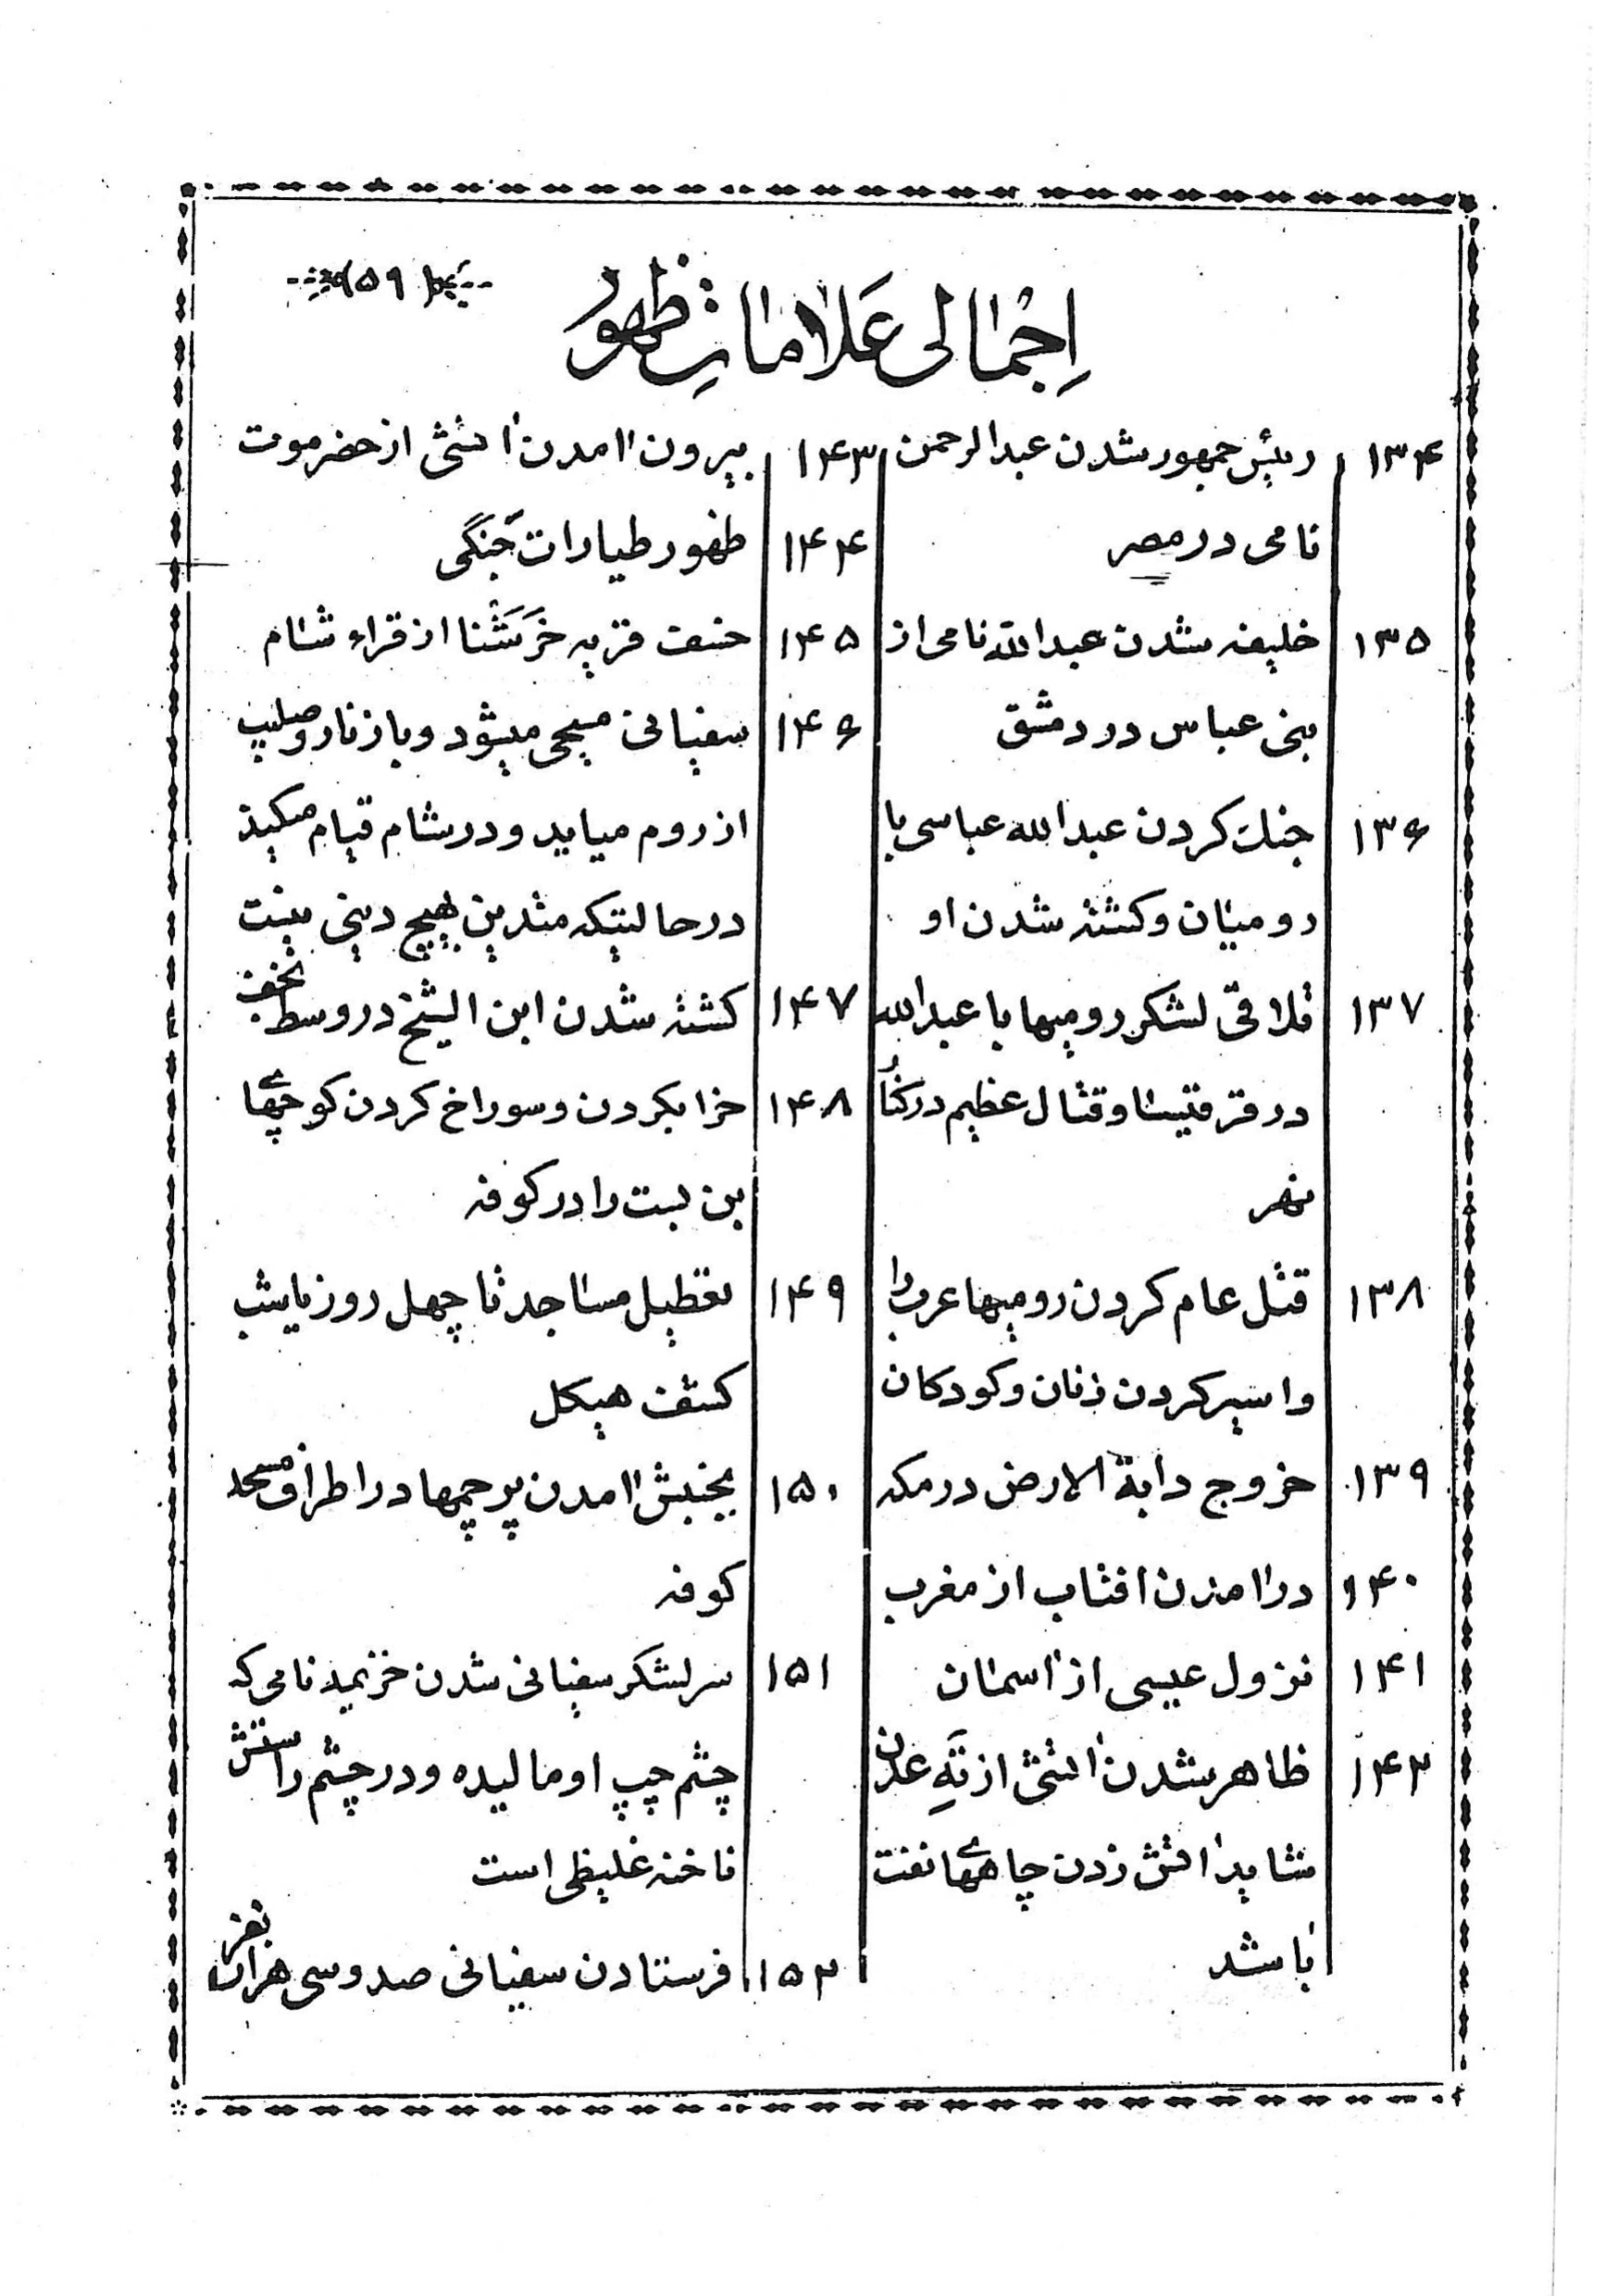 ۵۹
اِجْمالی عَلاماتِ ظهور
۱۳۴ رئیس جمهور شدن عبدالرحمن
نامی در مصر
۱۳۵ خلیفه شدن عبدالله نامی از
بنی عباس در دمشق
۱۳۶ جنگ کردن عبدالله عباسی با
رومیان و کشته شدن او
۱۳۷ تلاقی لشکر رومیها با عبدالله
در قرقیسا و قتال عظیم در کنار
نهر
۱۳۸ قتل عام کردن رومیها عرب را
و اسیر کردن زنان و کودکان
۱۳۹ خروج دابة الارض در مکه
۱۴۰ درآمدن افتاب از مغرب
۱۴۱ نزول عیسی از آسمان
۱۴۲ ظاهر شدن آتش از تَهِ عدن
شاید آتش زدن چاههای نفت
باشد
۱۴۳ بیرون آمدن آتشی از حضرموت
۱۴۴ ظهور طیارات جَنگی
۱۴۵ خسف قریه خَرَشَنا از قراء شام
۱۴۶ سفیانی مسیحی میشود و با زنار و صلیب
از روم میاید و در شام قیام میکند
در حالتیکه متدین بهیچ دینی نیست
۱۴۷ کشته شدن ابن الشیخ در وسط نجف
۱۴۸ خرابکردن و سوراخ کردن کوچههای
بن بست را در کوفه
۱۴۹ تعطیل مساجد تا چهل روز یا شب
کشف هیکل
۱۵۰ بجنبش آمدن پرچمها در اطراف مسجد
کوفه
۱۵۱ سرلشکر سفیانی شدن خزیمه نامی که
چشم چپ او مالیده و در چشم راستش
ناخنه غلیظی است
۱۵۲ فرستادن سفیانی صد و سی هزار نفر